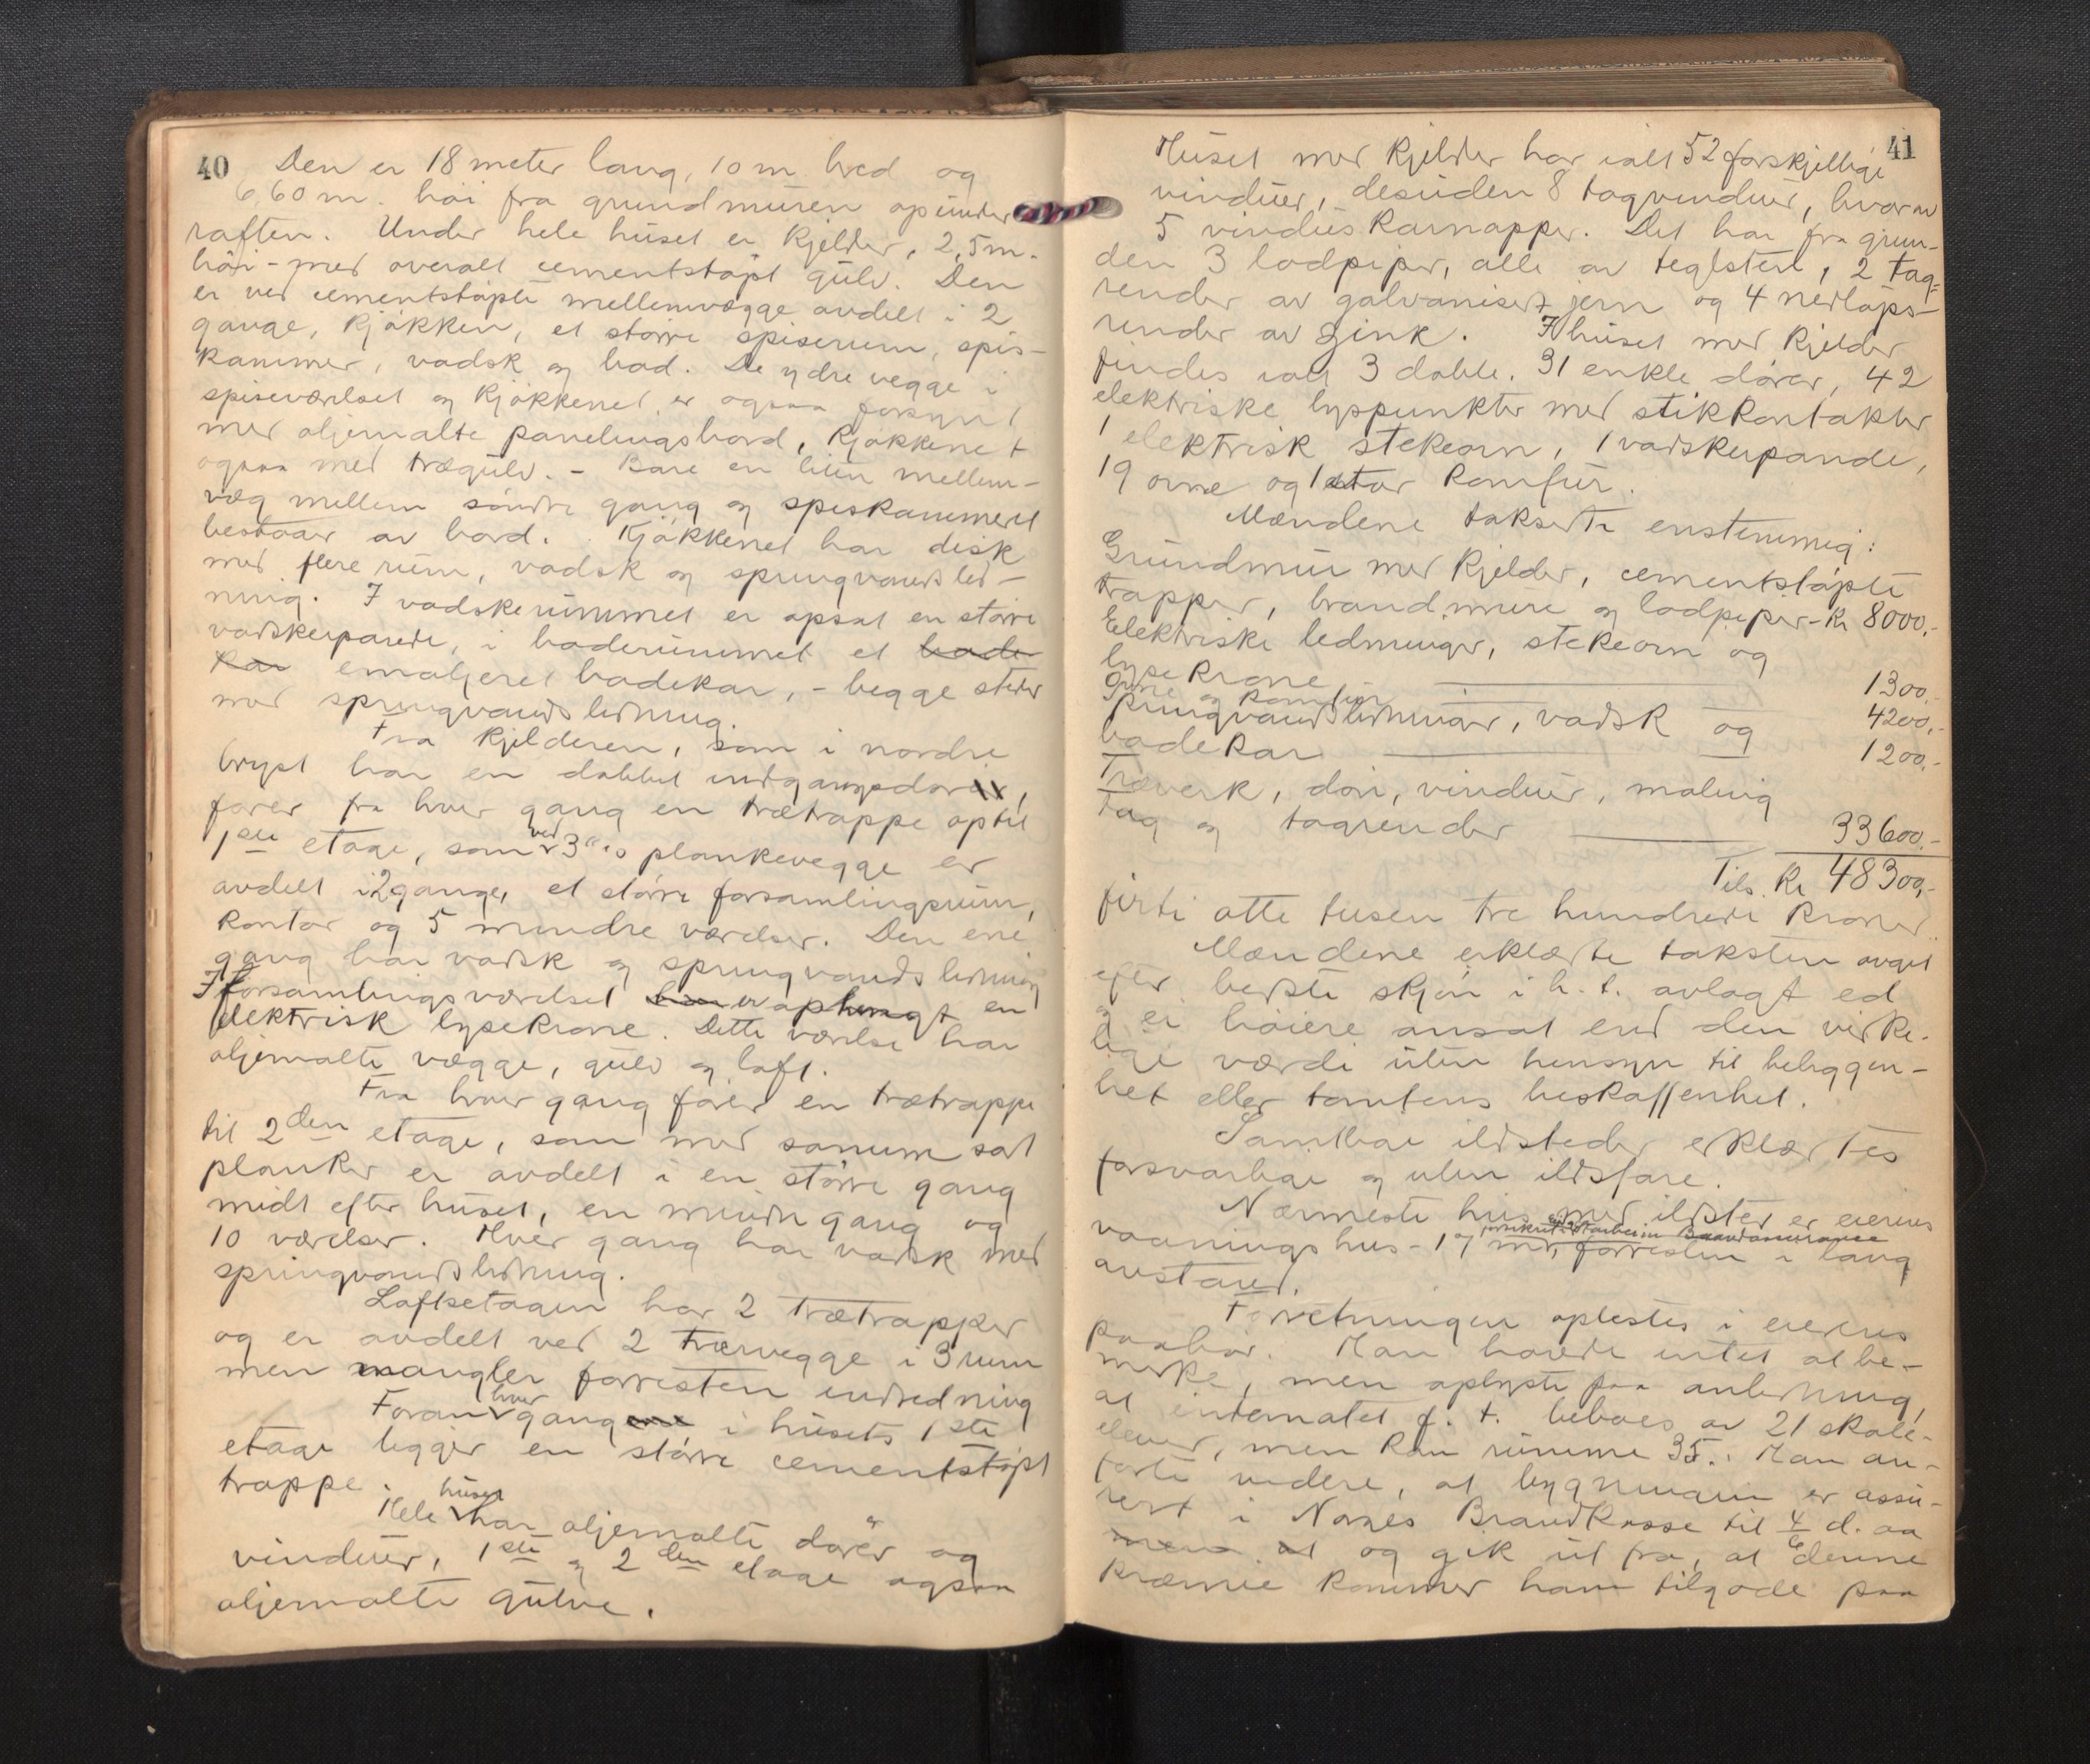 40
Den er 18 meter lang, 10 m bred og
6,60 m. høi fra grundmuren opunder
raften. Under hele huset er kjelder, 2,5 m.
høi - med overalt cementstøpt gulv. Den
er ved cementstøpte mellemvægge avdelt i 2
gange, kjøkken, et større spiserum, spis-
kammer, vadsk og bad. De ydre vegge i
spiseværelset og kjøkkenet er ogsaa forsynt
med oljemalte panelingsbord, kjøkkenet
ogsaa med trægulv. - Bare en liten mellem-
væg mellem søndre gang og spiskammeret
bestaar av bord. Kjøkkenet har disk
med flere rum, vadsk og springvandsled-
ning. I vadskerummet er opsat en større
vadskepande, i baderummet et bade-
kar emaljeret badekar, - begge steder
med springvandsledning.
Fra kjelderen, som i nordre
bryst har en dobbel indgangsdør,
fører fra hver gang en trætrappe optil
1ste etage, som ved 3" plankevegge er
avdelt i 2 gange, et større forsamlingsrum,
kontor og 5 mindre værelser. Den ene
gang har vadsk og springvandsledning
I forsamlingsværelset har er ophengt en
elektrisk lysekrone. Dette værelse har
oljemalte vægge, gulv og loft.
Fra hver gang fører en trætrappe
til 2den etage, som med samme sort
planker er avdelt i en større gang
midt efter huset, en mindre gang og
10 værelser. Hver gang har vadsk med
springvandsledning.
Loftsetagen har 2 trætrapper
og er avdelt ved 2 trævegge i 3 rum
men mangler forresten indredning
Foran hver gang i husets 1ste
etage ligger en større cementstøpt
trappe.
Hele huset har oljemalte dører og
vinduer, 1ste og 2den etage ogsaa
oljemalte gulve.
41
Huset med kjelder har ialt 52 forskjellige
vinduer, desuden 8 tagvinduer, hvorav
5 vindus karnapper. Det har fra grun-
den 3 lodpiper, alle av teglsten, 2 tag-
render av galvanisert jern og 4 nedløps-
render av zink. I huset med kjelder
findes ialt 3 doble, 31 enkle dører, 42
elektriske lyspunkter med stikkontakter
1 elektrisk stekeovn, 1 vadskepande,
19 ovne og 1 stor komfur.
Mændene takserte enstemmig:
Grundmur med kjelder, cementstøpte
trapper, brandmure og lodpiper - kr 8000,-
Elektriske ledninger, stekeovn og
lysekrone 1300,-
Ovne og komfur 4200,-
Springvandsledninger, vadsk og
badekar 1200,-
Træverk, døre, vinduer, maling
tag og tagrender 33600,-
Tils. kr 48300,-
firti otte tusen tre hundrede kroner
Mændene erklærte taksten avgit
efter bedste skjøn i h. t. avlagt ed
og ei høiere ansat end den virke-
lige værdi uten hensyn til beliggen-
het eller tomtens beskaffenhet.
Samtlige ildsteder erklærtes
forsvarlige og uten ildsfare.
Nærmeste hus med ildsted er eierens
vaaningshus - 1 og forresten i lang
avstand.
Forretningen oplæstes i eierens
paahør. Han havde intet at be-
merke, men oplyste paa anledning,
at internatet f. t. beboes av 21 skole-
elever, men kan rumme 35. Han an-
førte videre, at bygningen er assu-
rert i Norges Brandkasse til 4/6 d. aa
men at og gik ut fra, at denne
præmie kommer ham tilgode paa